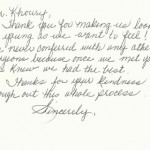 Dr. Khoury,
Thank you for making us look
as young as we want to feel!
We never conferred with any other
surgeons because once we met you
we knew we had the best.
Thanks for your kindness
through out this whole process
Sincerely,